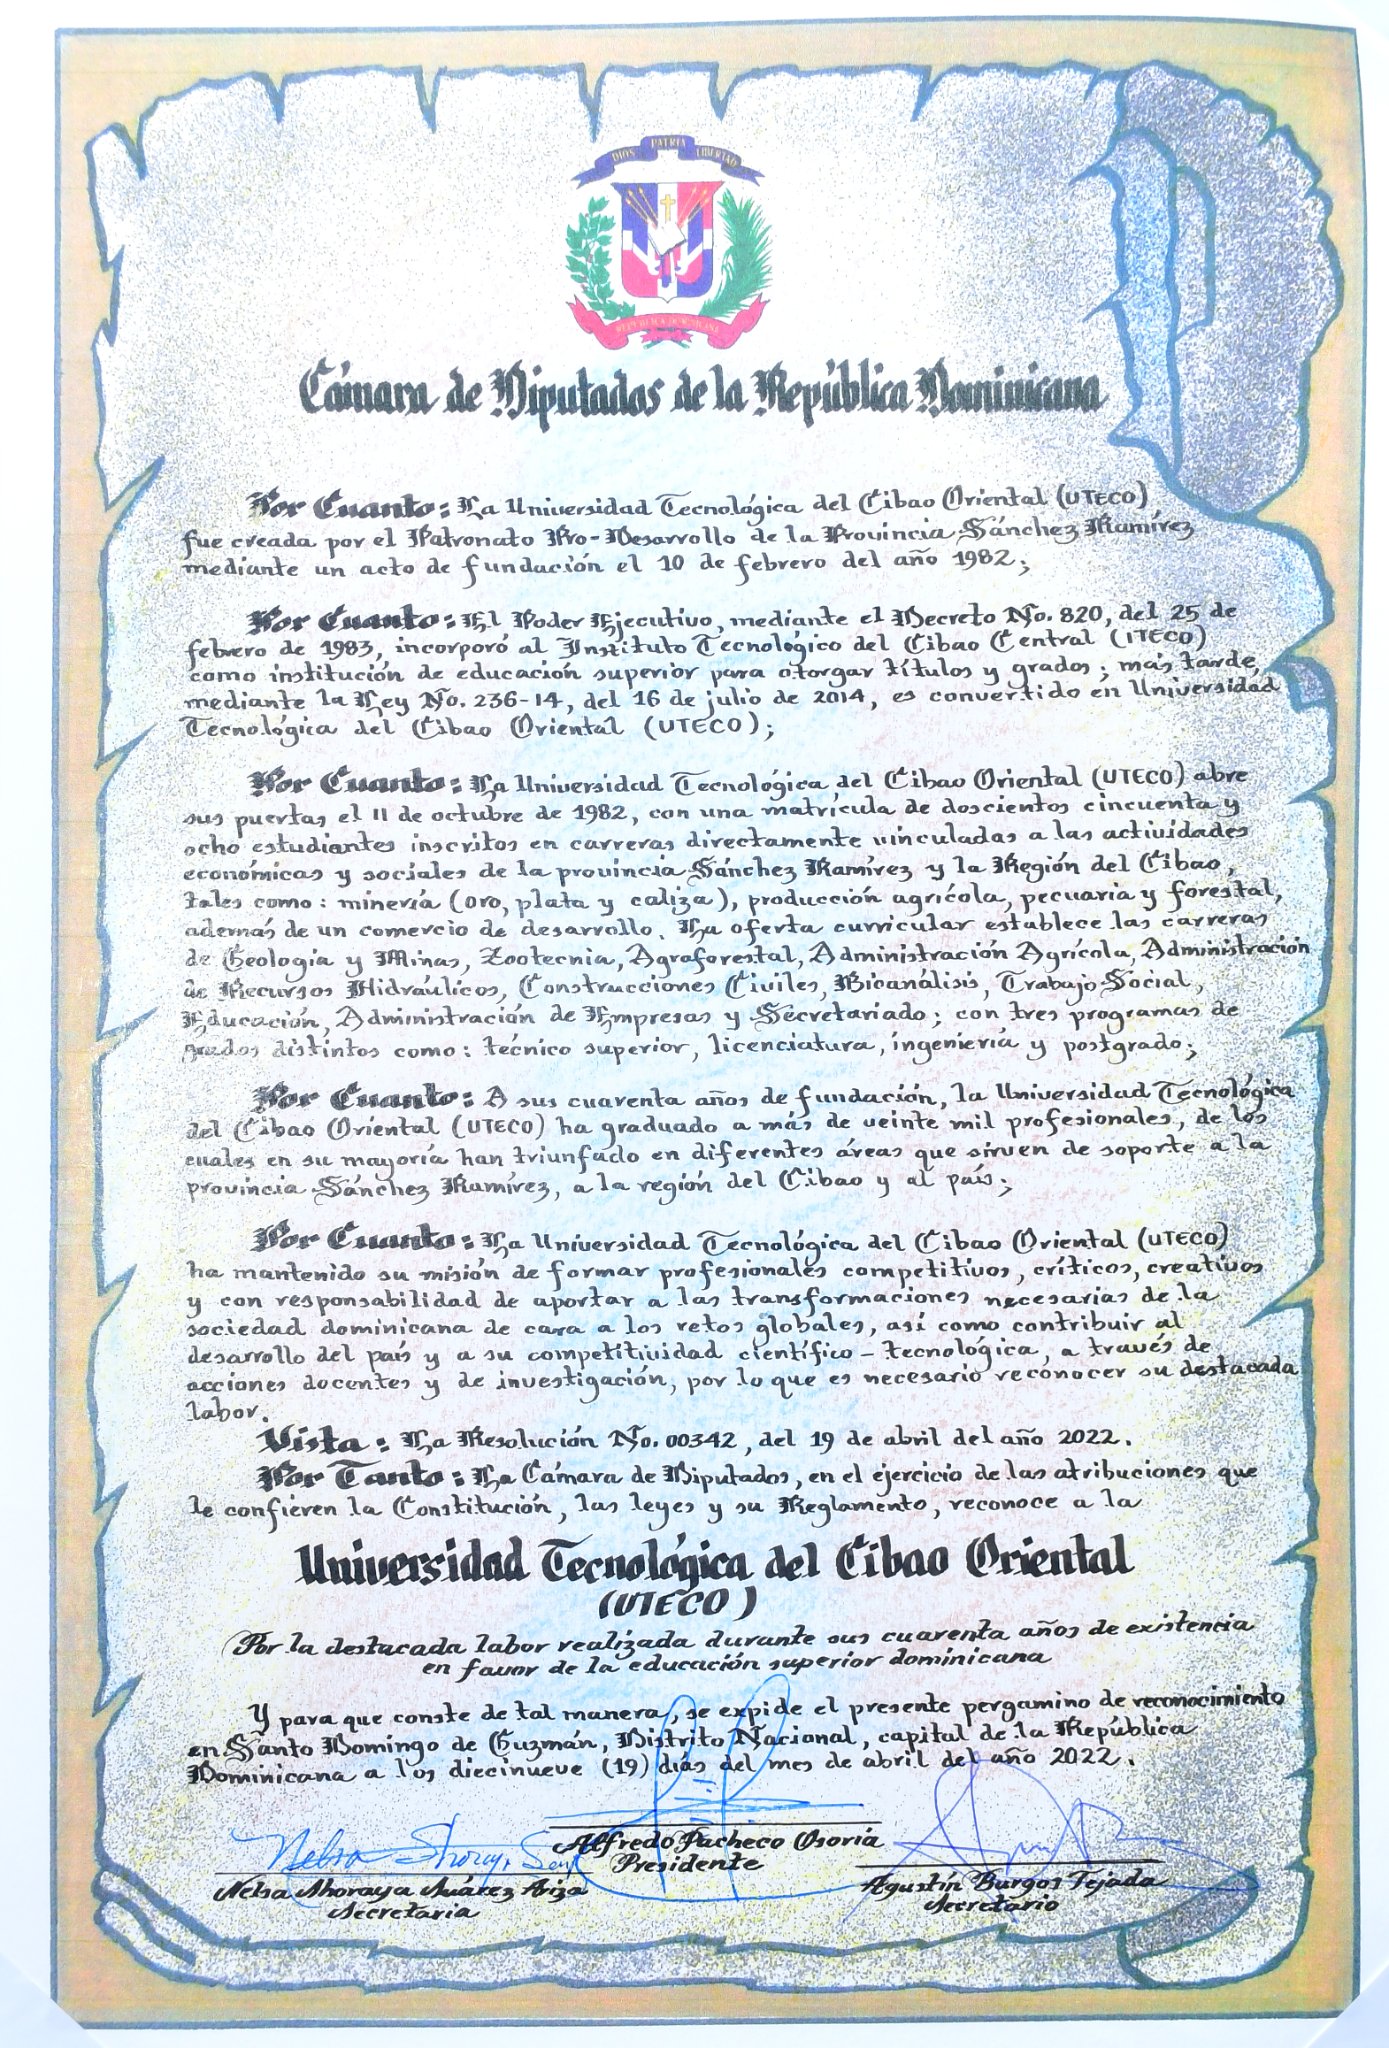 DIOS PATRIA LIBERTAD
REPÚBLICA DOMINICANA
Cámara de Diputados de la República Dominicana
Por Cuanto: La Universidad Tecnológica del Cibao Oriental (UTECO)
fue creada por el Patronato Pro-Desarrollo de la Provincia Sánchez Ramírez
mediante un acto de fundación el 10 de febrero del año 1982;
Por Cuanto: El Poder Ejecutivo, mediante el Decreto No. 820, del 25 de
febrero de 1983, incorporó al Instituto Tecnológico del Cibao Central (ITECO)
como institución de educación superior para otorgar títulos y grados; más tarde,
mediante la Ley No. 236-14, del 16 de julio de 2014, es convertido en Universidad
Tecnológica del Cibao Oriental (UTECO);
Por Cuanto: La Universidad Tecnológica del Cibao Oriental (UTECO) abre
sus puertas el 11 de octubre de 1982, con una matrícula de doscientos cincuenta y
ocho estudiantes inscritos en carreras directamente vinculadas a las actividades
económicas y sociales de la provincia Sánchez Ramírez y la Región del Cibao,
tales como: minería (oro, plata y caliza), producción agrícola, pecuaria y forestal,
además de un comercio de desarrollo. La oferta curricular establece las carreras
de Geología y Minas, Zootecnia, Agroforestal, Administración Agrícola, Administración
de Recursos Hidráulicos, Construcciones Civiles, Bioanálisis, Trabajo Social,
Educación, Administración de Empresas y Secretariado; con tres programas de
grados distintos como: técnico superior, licenciatura, ingeniería y postgrado;
Por Cuanto: A sus cuarenta años de fundación, la Universidad Tecnológica
del Cibao Oriental (UTECO) ha graduado a más de veinte mil profesionales, de los
cuales en su mayoría han triunfado en diferentes áreas que sirven de soporte a la
provincia Sánchez Ramírez, a la región del Cibao y al país;
Por Cuanto: La Universidad Tecnológica del Cibao Oriental (UTECO)
ha mantenido su misión de formar profesionales competitivos, críticos, creativos
y con responsabilidad de aportar a las transformaciones necesarias de la
sociedad dominicana de cara a los retos globales, así como contribuir al
desarrollo del país y a su competitividad científico-tecnológica, a través de
acciones docentes y de investigación, por lo que es necesario reconocer su destacada
labor.
Vista: La Resolución No. 00342, del 19 de abril del año 2022.
Por Tanto: La Cámara de Diputados, en el ejercicio de las atribuciones que
le confieren la Constitución, las leyes y su Reglamento, reconoce a la
Universidad Tecnológica del Cibao Oriental
(UTECO)
Por la destacada labor realizada durante sus cuarenta años de existencia
en favor de la educación superior dominicana
Y para que conste de tal manera, se expide el presente pergamino de reconocimiento
en Santo Domingo de Guzmán, Distrito Nacional, capital de la República
Dominicana a los diecinueve (19) días del mes de abril del año 2022.
Alfredo Pacheco Osoria
Presidente
Nelsa Shoraya Suárez Ariza
Secretaria
Agustín Burgos Tejada
Secretario